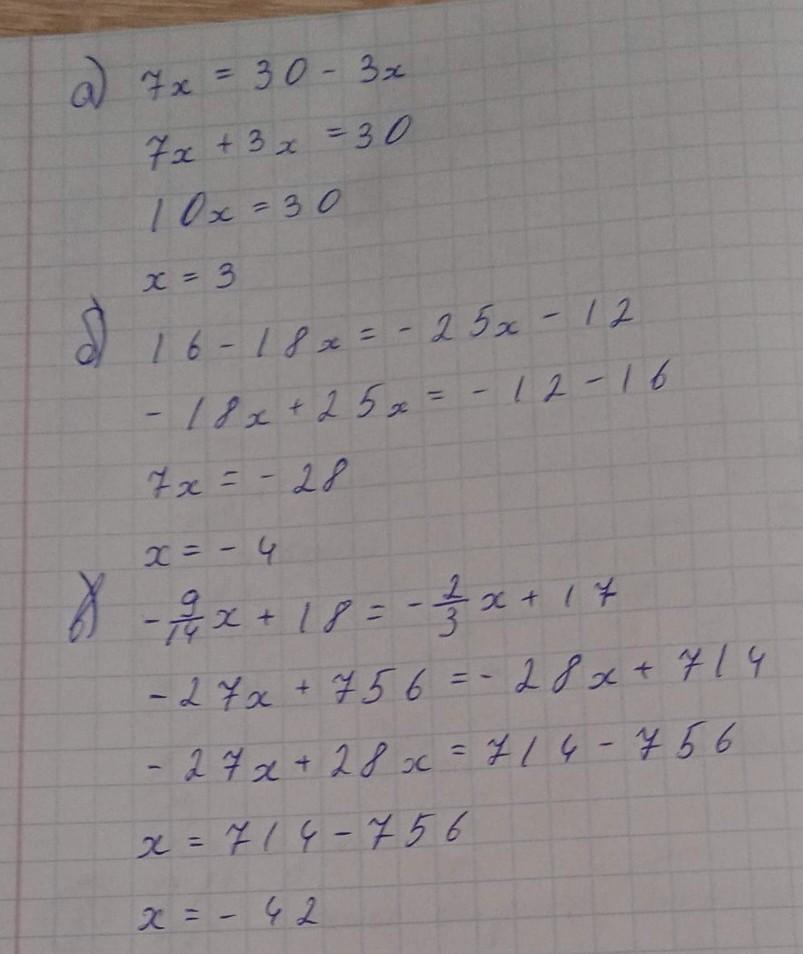 а) 7x = 30 - 3x
7x + 3x = 30
10x = 30
x = 3
б) 16 - 18x = - 25x - 12
- 18x + 25x = - 12 - 16
7x = - 28
x = - 4
в) - 9/14 x + 18 = - 2/3 x + 17
- 27x + 756 = - 28x + 714
- 27x + 28x = 714 - 756
x = 714 - 756
x = - 42